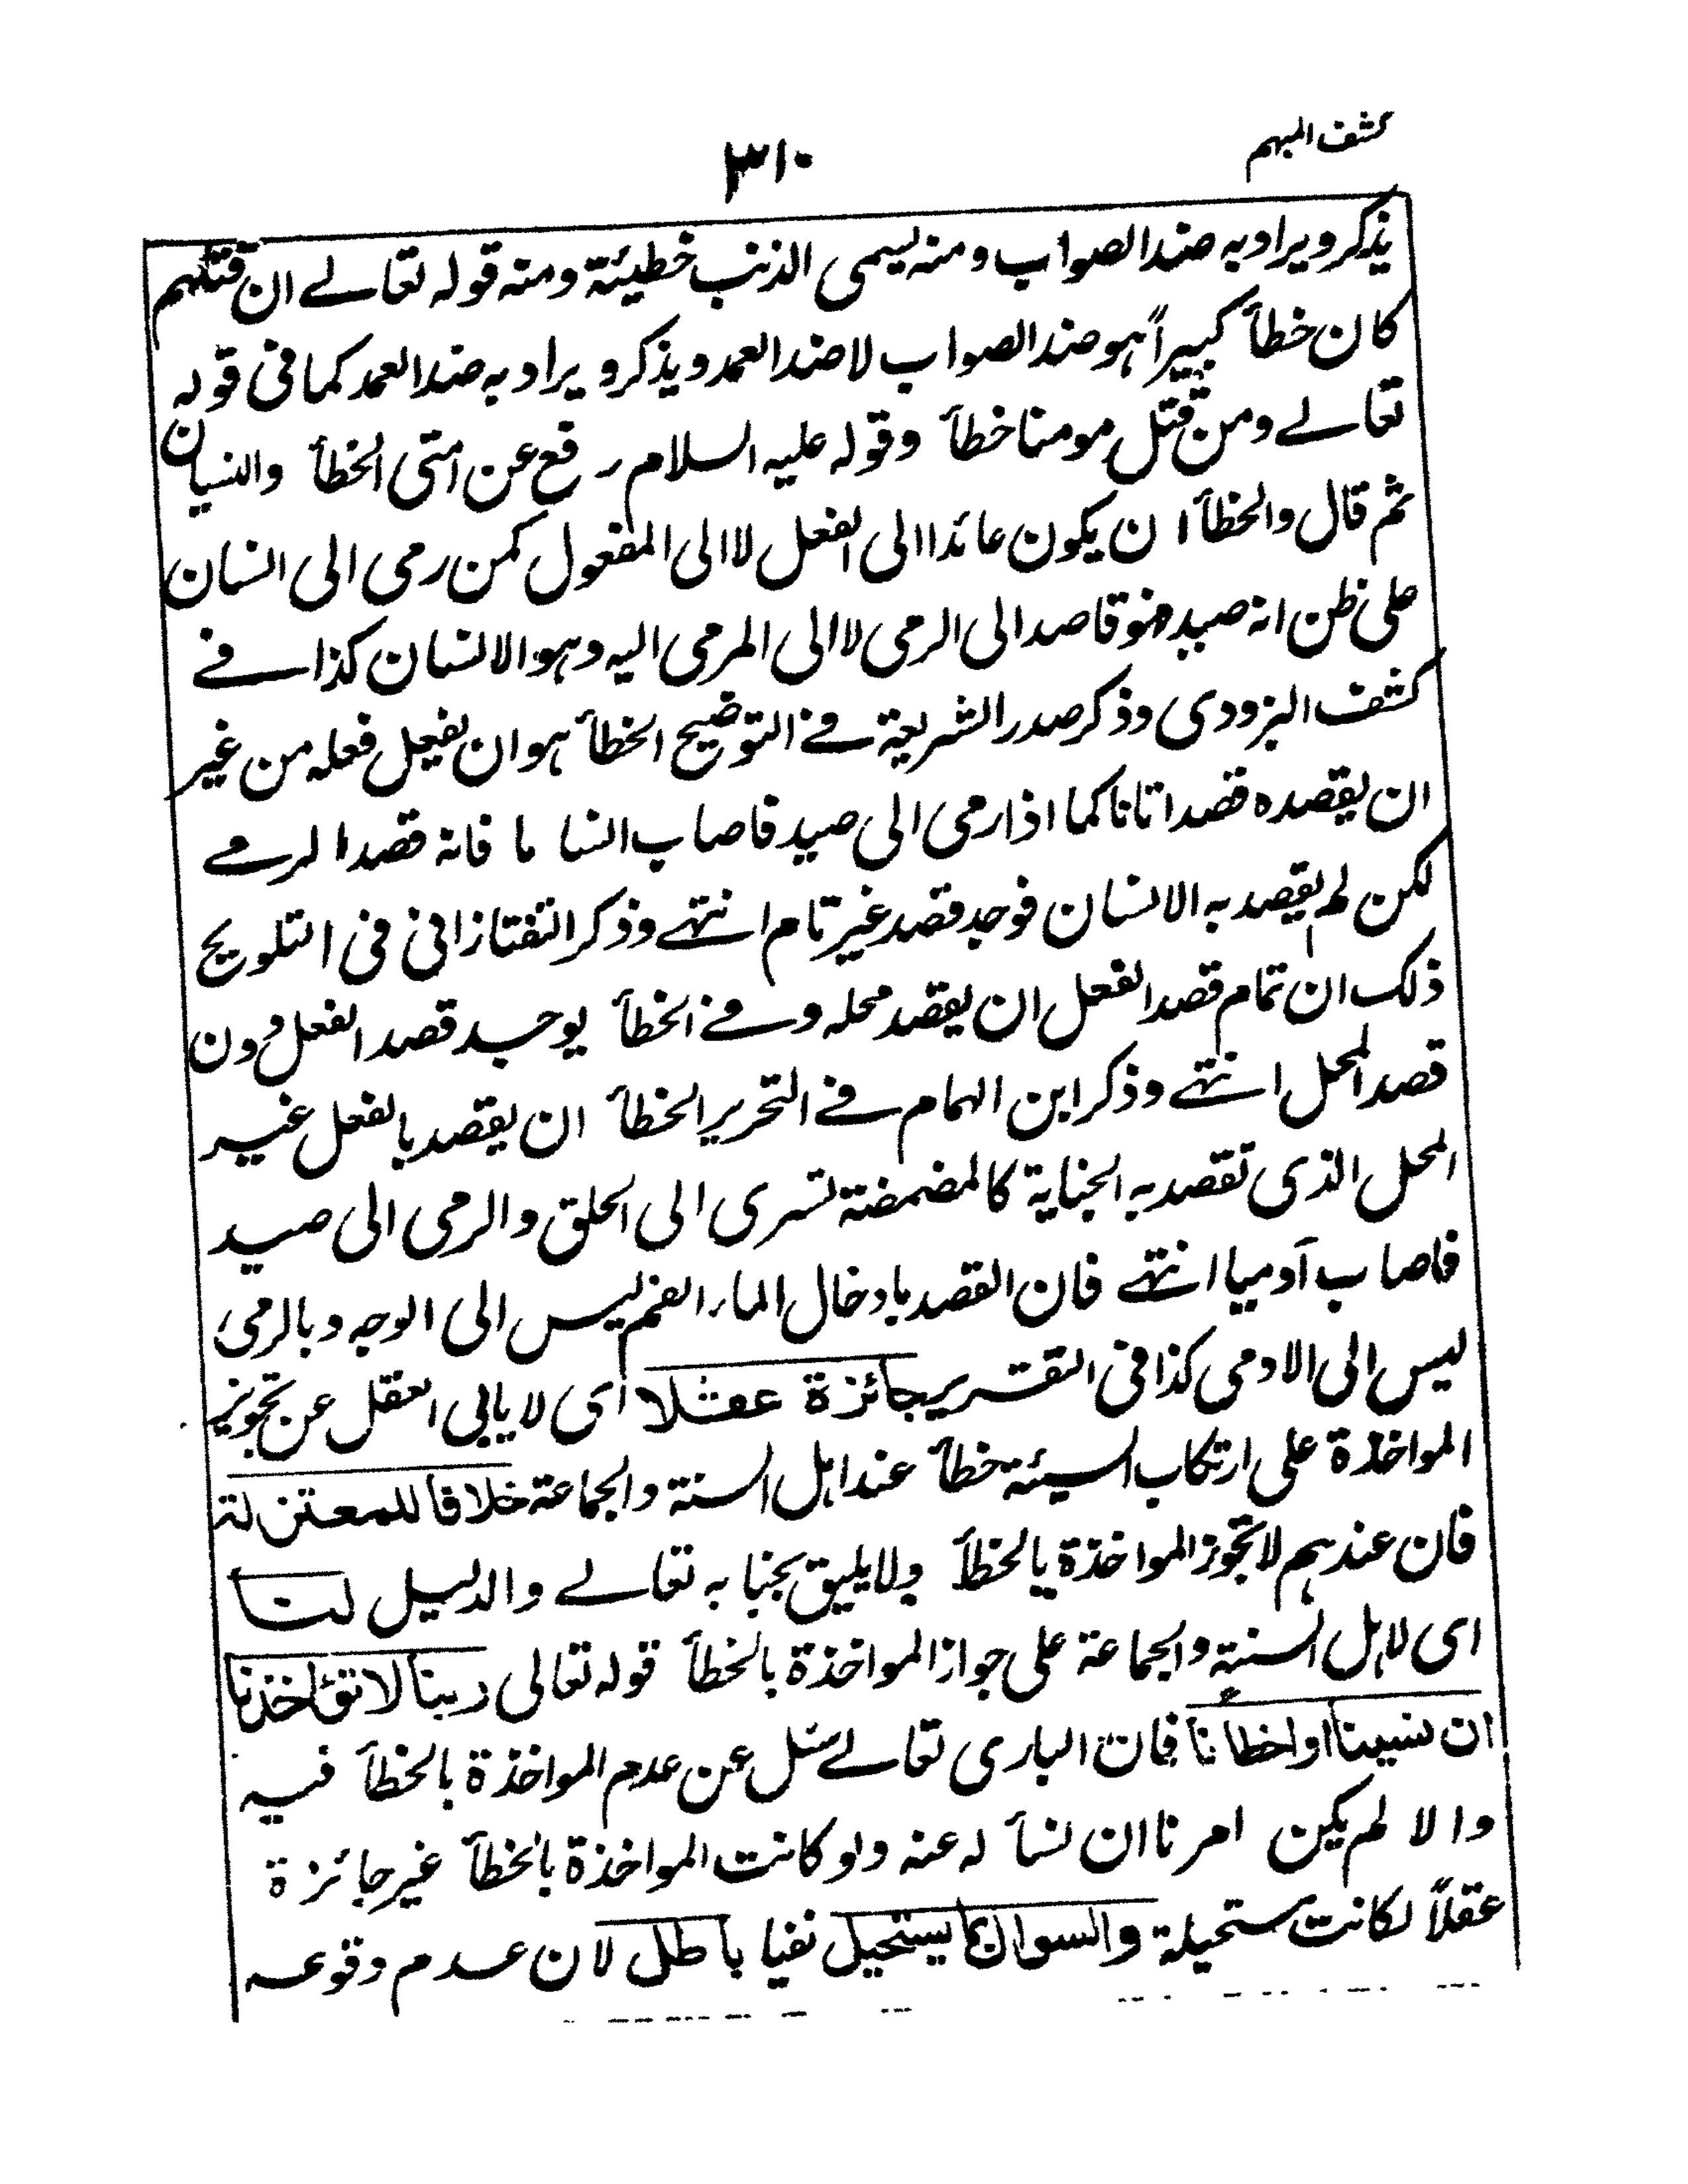 كشف المبهم
٣١٠
يذكر ويراد به ضد الصواب ومنه يسمى الذنب خطيئة ومنه قوله تعالے ان قتلهم
كان خطأ كبيراً هو ضد الصواب لا ضد العمد ويذكر ويراد به ضد العمد كما فى قوله
تعالے ومن قتل مومنا خطأ وقوله عليه السلام رفع عن امتى الخطأ والنسيان
ثم قال والخطأ ان يكون عائدا الى الفعل لا الى المفعول كمن رمى الى انسان
على ظن انه صيد فهو قاصد الى الرمى لا الى المرمى اليه وهو الانسان كذا فے
كشف البزودى وذكر صدر الشريعة فے التوضيح الخطأ هو ان يفعل فعله من غير
ان يقصده قصدا تاما كما اذا رمى الى صيد فاصاب انسانا فانه قصد الرمے
لكن لم يقصد به الانسان فوجد قصد غير تام انتهے وذكر التفتازانى فى التلويح
ذلك ان تمام قصد الفعل ان يقصد محله وفے الخطأ يوجد قصد الفعل دون
قصد المحل انتهے وذكر ابن الهمام فے التحرير الخطأ ان يقصد بالفعل غير
المحل الذى تقصد به الجناية كالمضمضة تسرى الى الحلق والرمى الى صيد
فاصاب آدميا انتهے فان القصد بادخال الماء الفم ليس الى الوجه وبالرمى
ليس الى الادمى كذا فى التقرير جائزة عقلا اى لا يابى العقل عن تجويز
المواخذة على ارتكاب السيئة خطأ عند اهل السنة والجماعة خلافا للمعتزلة
فان عندهم لا تجوز المواخذة بالخطأ ولا يليق بجنابه تعالے والدليل لنا
اى لاهل السنة والجماعة على جواز المواخذة بالخطأ قوله تعالى ربنا لا تؤاخذنا
ان نسينا او اخطأنا فان البارى تعالے سئل عن عدم المواخذة بالخطأ فيه
والا لم يكن امرنا ان نسأله عنه ولو كانت المواخذة بالخطأ غير جائزة
عقلاً لكانت مستحيلة والسوال بما يستحيل نفيا باطل لان عدم وقوعه